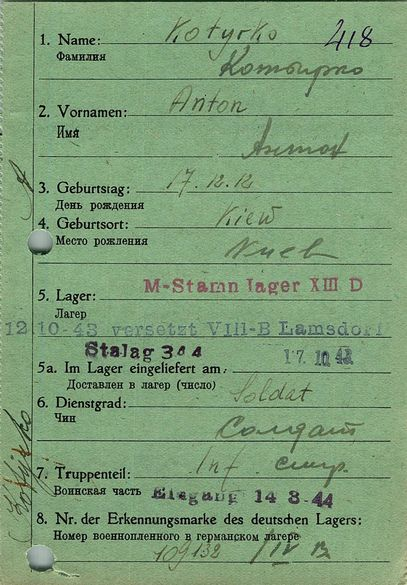 1. Name: Kotyrko 418
Фамилия Котырко
2. Vornamen: Anton
Имя
Антон
3. Geburtstag: 17.12.12
День рождения
4. Geburtsort: Kiew
Место рождения Киев
M-Stamn lager XIII D
5. Lager:
Лагер
12 10-43 versetzt VIII-B Lamsdorf
Stalag 344 17. 10 43
5a. Im Lager eingeliefert am:
Доставлен в лагер (число)
6. Dienstgrad: Soldat
Чин
Солдат
7. Truppenteil: Inf.
Воинская часть Eingang 14 3-44
8. Nr. der Erkennungsmarke des deutschen Lagers:
Номер военнопленного в германском лагере
109132